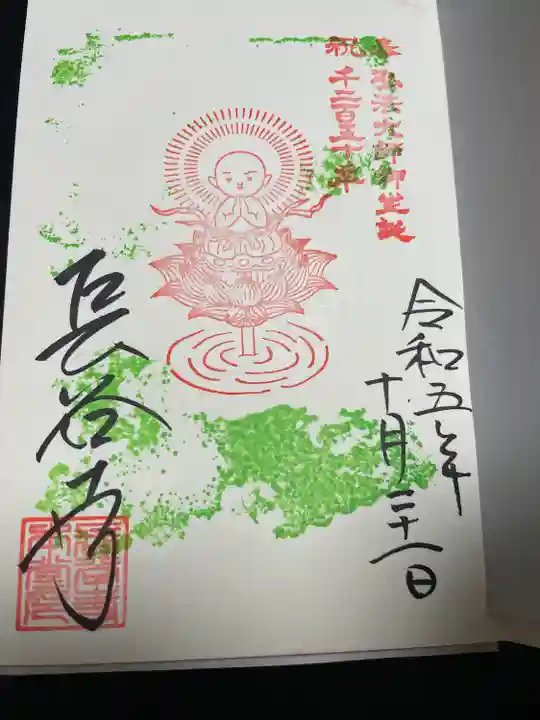 奉祝
弘法大師御生誕
千二百五十年
令和五年
十月二十一日
長谷寺